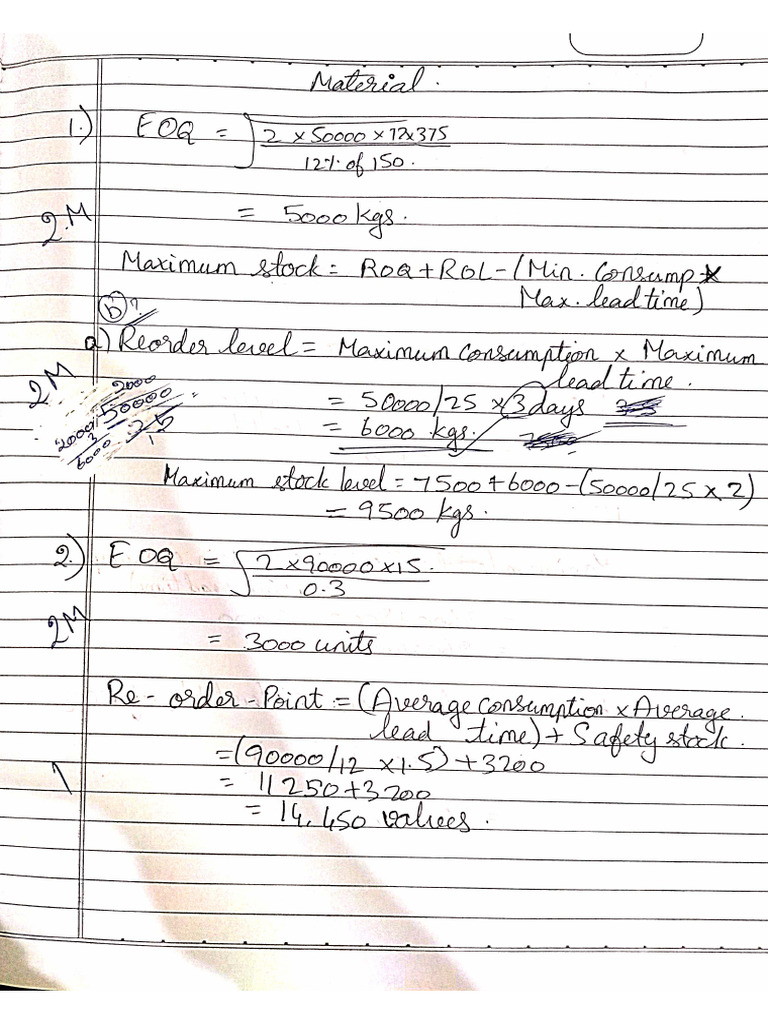 Material.
1.) EOQ = √ 2 × 50000 × 12 × 375
12% of 150.
2 M = 5000 kgs.
Maximum stock = ROQ + ROL - (Min. Consump ×
Max. leadtime)
(b)?
a) Reorder level = Maximum Consumption × Maximum
lead time.
2M = 50000/25 × 3 days
= 6000 kgs.
2000
2000/50000
3 25
6000
Maximum stock level = 7500 + 6000 - (50000/25 × 2)
= 9500 kgs.
2.) EOQ = √ 2 × 90000 × 15.
0.3
2M = 3000 units
Re-order-Point = (Average consumption × Average.
lead time) + Safety stock.
= (90000/12 × 1.5) + 3200
1 = 11250 + 3200
= 14,450 values.